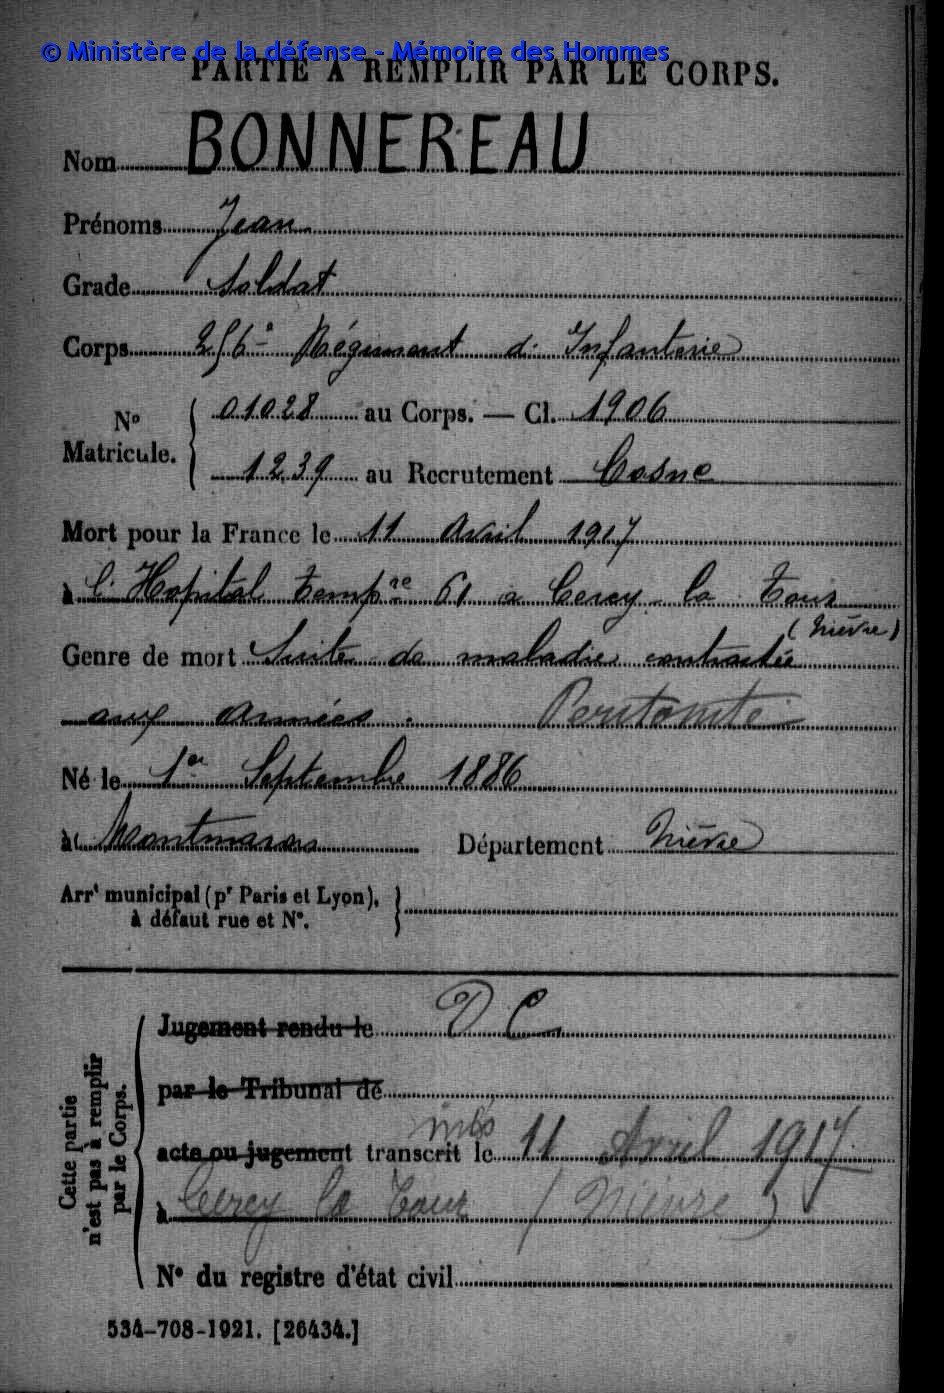 © Ministère de la défense - Mémoire des Hommes
PARTIE À REMPLIR PAR LE CORPS.
Nom BONNEREAU
Prénoms Jean
Grade Soldat
Corps 256e Régiment d'Infanterie
N° Matricule. 01028 au Corps. — Cl. 1906
1239 au Recrutement Cosne
Mort pour la France le 11 Avril 1917
à l'Hopital tempre 61 a Cercy-la Tour
(Nièvre)
Genre de mort Suite de maladie contractée
aux Armées. Péritonite
Né le 1er Septembre 1886
à Montmaras Département Nièvre
Arrt municipal (pr Paris et Lyon),
à défaut rue et N°.
Cette partie
n'est pas à remplir
par le Corps.
Jugement rendu le D C
par le Tribunal de
acte ou jugement transcrit le 11 Avril 1917
à Cercy la Tour (Nièvre)
N° du registre d'état civil
534-708-1921. [26434.]